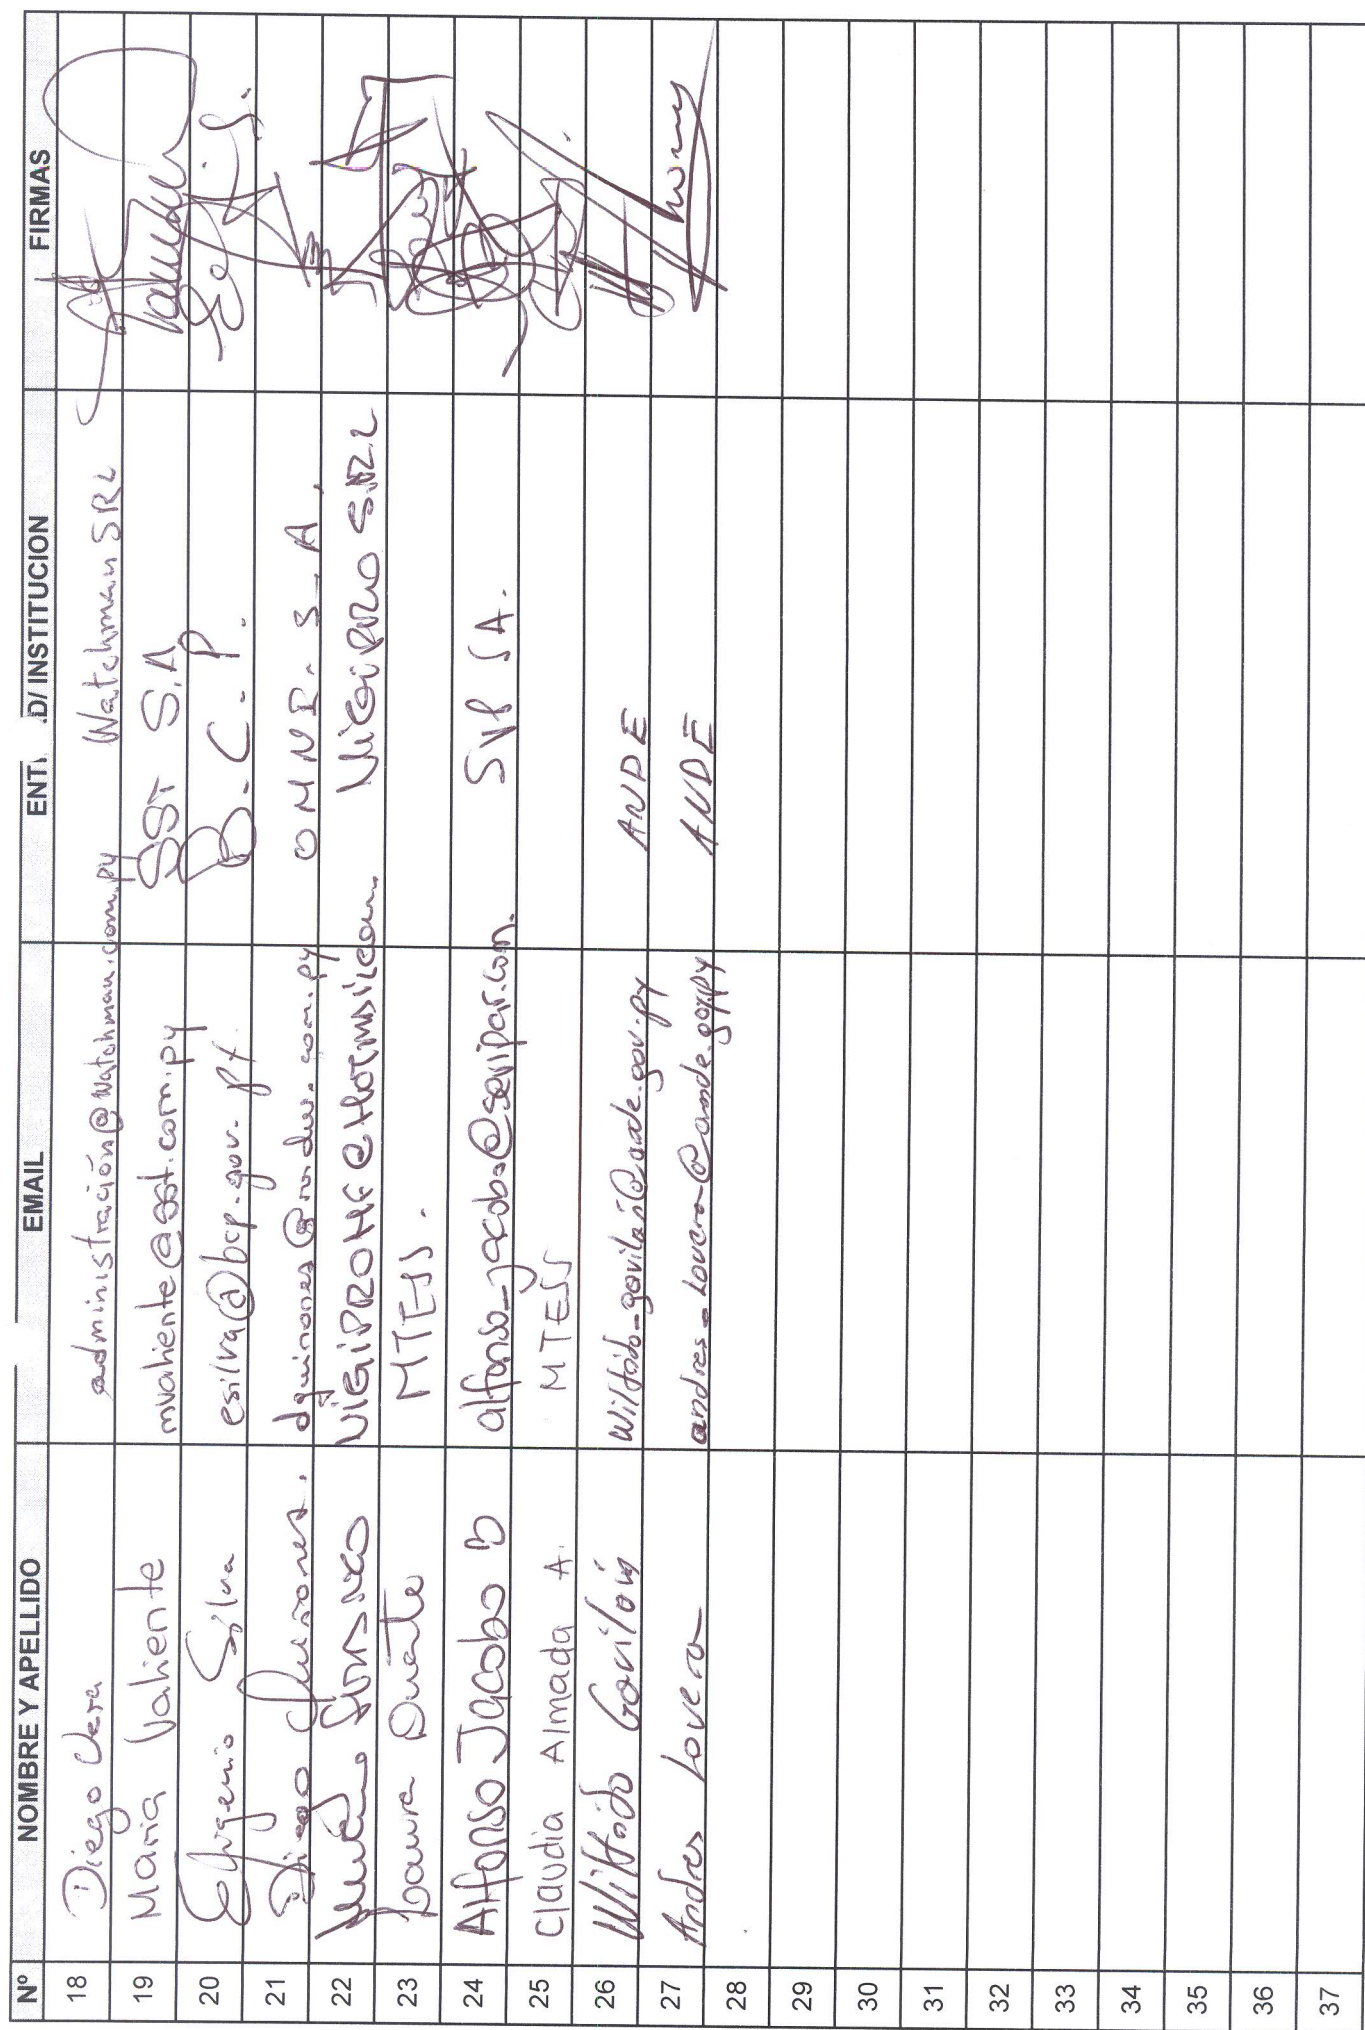 Nº NOMBRE Y APELLIDO EMAIL ENTI .D/ INSTITUCION FIRMAS
18 Diego Vera administración@watchman.com.py Watchman SRL
19 Maria Valiente mvaliente@sst.com.py SST S.A
20 Eugenio Silva esilva@bcp.gov.py B.C.P.
21 Diego Quiñones. OMNI. S.A.
22 VIGIPROHF@HOTMAIL.COM. VIGIPRO S.R.L
23 Laura Duarte MTESS.
24 Alfonso Jacobo B alfonso_jacobo@servipar.com. SVP SA.
25 Claudia Almada A. MTESS
26 Wilfrido Gavilán wilfrido_gavilan@ande.gov.py ANDE
27 Andres Lovera andres_lovera@ande.gov.py ANDE
28
29
30
31
32
33
34
35
36
37